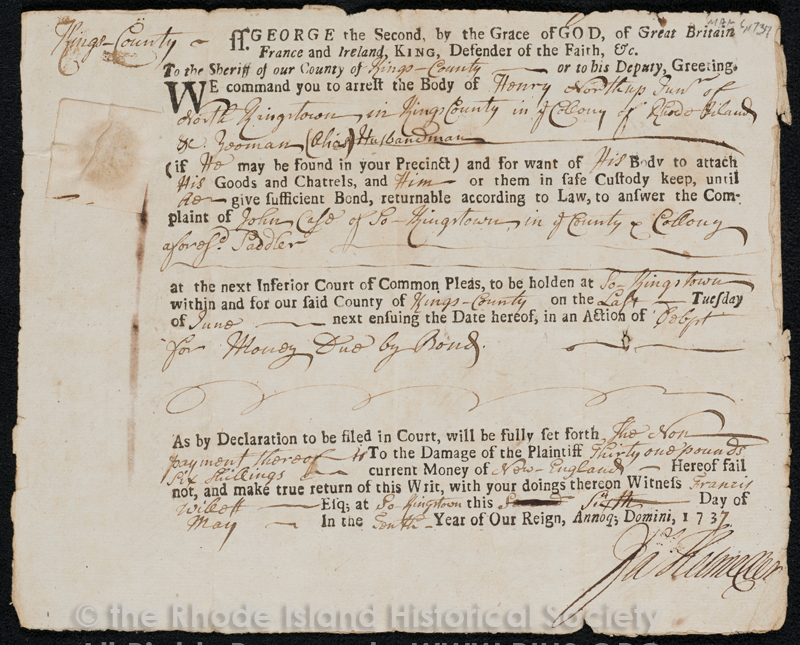 Kings-County ss. GEORGE the Second, by the Grace of GOD, of Great Britain
France and Ireland, KING, Defender of the Faith, &c.
To the Sheriff of our County of Kings-County or to his Deputy, Greeting.
WE command you to arrest the Body of Henry Northup Junr. of
North Kingstown in Kings County in ye Collony of Rhode Island
&c. Yeoman (Alias) Husbandman
(if He may be found in your Precinct) and for want of His Body to attach
His Goods and Chattels, and Him or them in safe Custody keep, until
He give sufficient Bond, returnable according to Law, to answer the Com-
plaint of John Case of So-Kingstown, in ye County & Collony
aforesd. Saddler
at the next Inferior Court of Common Pleas, to be holden at So-Kingstown
within and for our said County of Kings-County on the Last Tuesday
of June next ensuing the Date hereof, in an Action of Debpt
for Money Due by Bond.
As by Declaration to be filed in Court, will be fully set forth The Non
payment thereof is To the Damage of the Plaintiff Thirty one pounds
Six Shillings current Money of New-England Hereof fail
not, and make true return of this Writ, with your doings thereon Witness Francis
Willett Esq; at So-Kingstown this Sixth Day of
May In the Tenth Year of Our Reign, Annoq; Domini, 1737
© the Rhode Island Historical Society